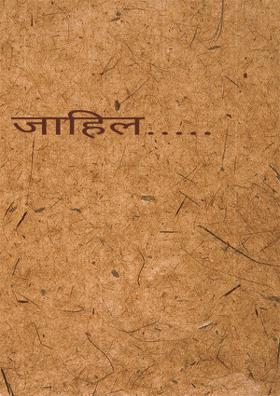 जाहिल.....